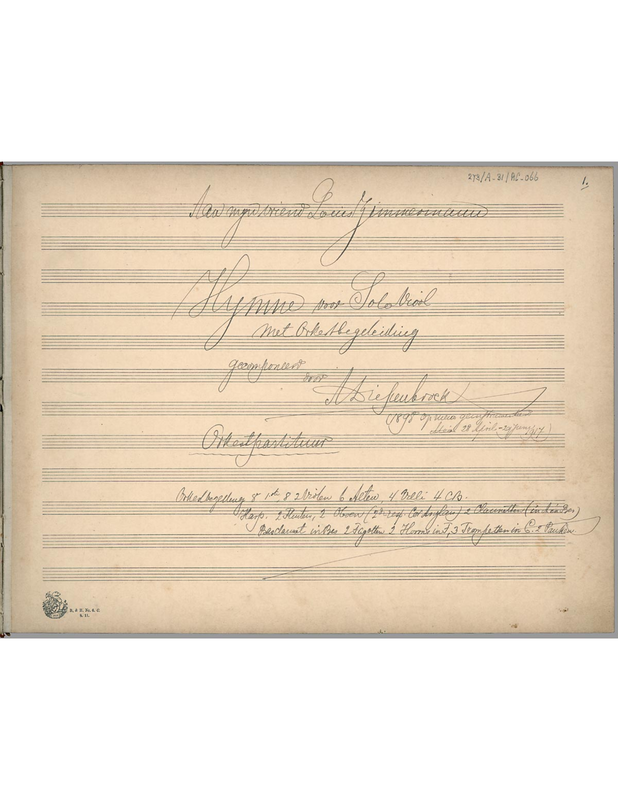 278/A-31/RS-066
1.
Aan mijn vriend Louis Zimmermann
Hymne voor Solo Viool
met Orkestbegeleiding
gecomponeerd
door
A Diepenbrock
1898 opnieuw geinstrumenteerd
28 April - 1917)
Orkestpartituur
Orkestbezetting 8 1ste 8 2 Violen 6 Alten, 4 Celli 4 CB.
Harp. 2 Fluiten, 2 Hoven (2e Cor Anglais) 2 Clarinetten (in Bes)
Basclarinet in Bes 2 Fagotten 2 Hoorns in F, 3 Trompetten in C. 2 Pauken